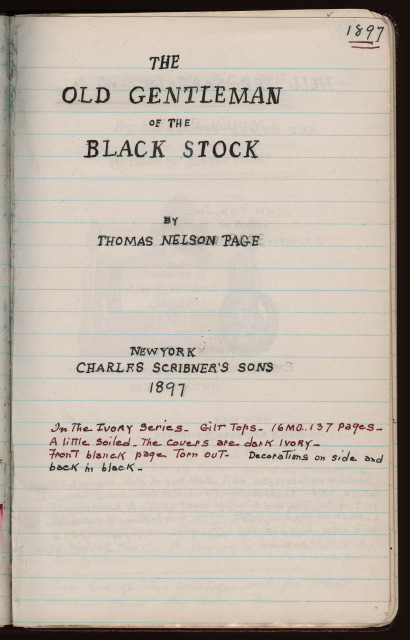 1897
THE
OLD GENTLEMAN
OF THE
BLACK STOCK
BY
THOMAS NELSON PAGE
NEW YORK
CHARLES SCRIBNER'S SONS
1897
In The Ivory Series- Gilt Tops- 16MO. 137 Pages-
A little Soiled- The covers are dark Ivory-
Front blanck page Torn out- Decorations on side and
back in black-